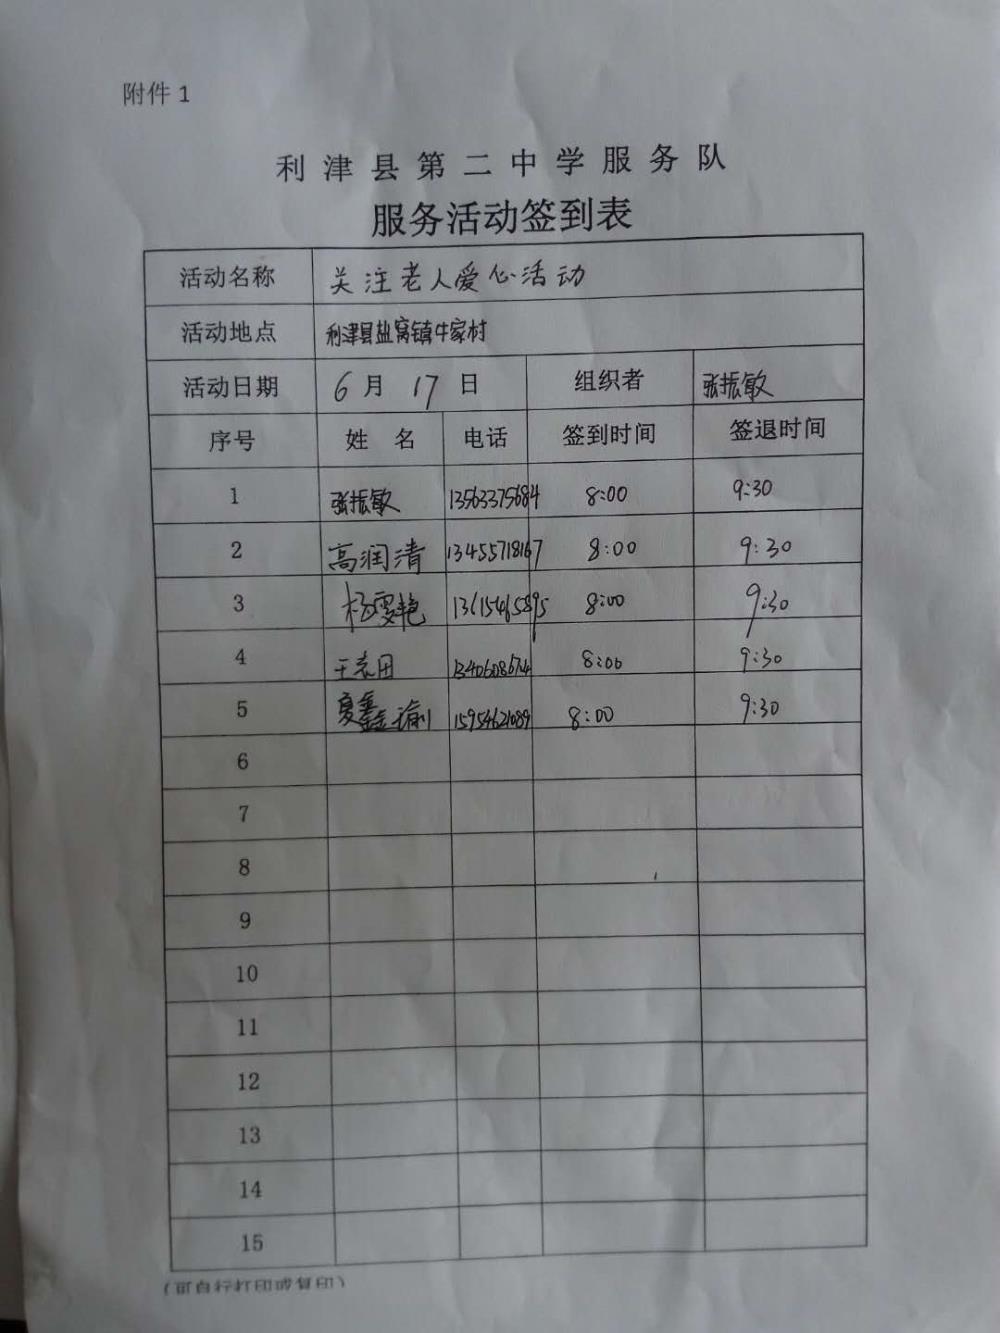 附件 1
利津县第二中学服务队
服务活动签到表
活动名称 关注老人爱心活动
活动地点 利津县盐窝镇牛家村
活动日期 6月 17日 组织者 张振敏
序号 姓 名 电话 签到时间 签退时间
1 张振敏 13563375684 8:00 9:30
2 高润清 13455718167 8:00 9:30
3 杨雯艳 13615465895 8:00 9:30
4 8:00 9:30
5 夏鑫瑜 15954621089 8:00 9:30
6
7
8
9
10
11
12
13
14
15
(可自行打印或复印)